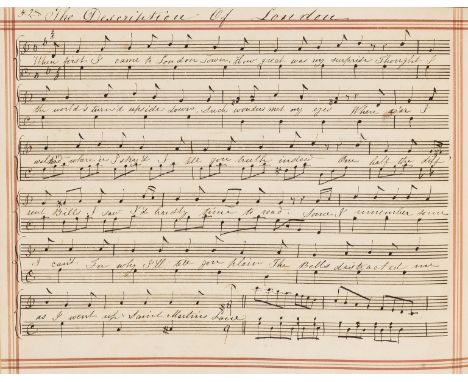 The Description Of London
When first I came to London Town, How great was my surprise Thought I
the world's turn'd upside down, Such wonders met my eyes Where e'er I
I tell you truth indeed One half the diff
rent Bills I saw I'd hardly time to read. Some I remember some
I can't. For why I'll tell you plain The Bells distracted me
as I went up Saint Martins Lane